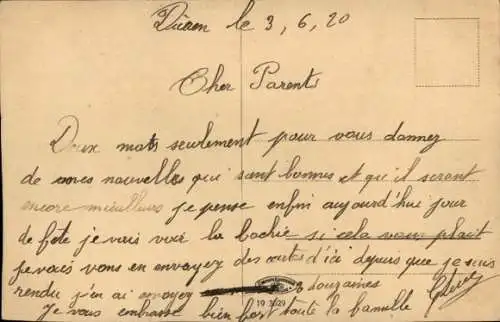 Düren le 3, 6, 20
Cher Parents
Deux mots seulement pour vous donnez
de mes nouvelles qui sont bonnes et qu'il seront
encore meilleurs je pense enfin aujourd'hui jour
de fete je vais voir la bochie si cela vous plait
je vais vous en envoyez des cartes d'ici depuis que je suis
rendu j'en ai envoyez 3 douzaines
19 3029
Je vous embrasse bien fort toute la famille